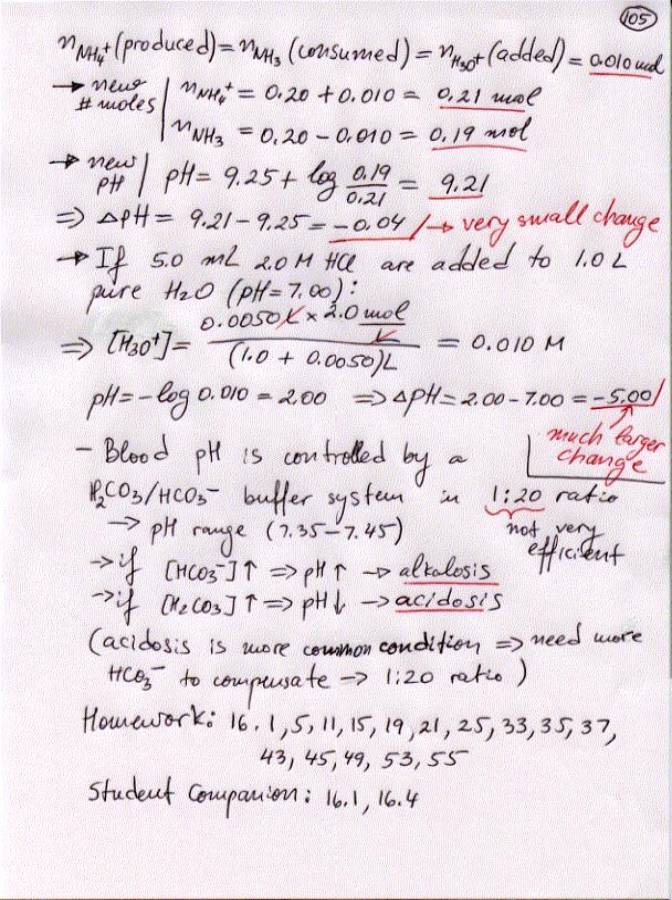 105
nNH4+ (produced) = nNH3 (consumed) = nH3O+ (added) = 0.010 mol
→ new # moles | nNH4+ = 0.20 + 0.010 = 0.21 mol
nNH3 = 0.20 - 0.010 = 0.19 mol
→ new pH | pH = 9.25 + log 0.19/0.21 = 9.21
⇒ ΔpH = 9.21 - 9.25 = -0.04 / → very small change
→ If 5.0 mL 2.0 M HCl are added to 1.0 L
pure H2O (pH = 7.00):
⇒ [H3O+] = (0.0050 L × 2.0 mol/L) / (1.0 + 0.0050)L = 0.010 M
pH = -log 0.010 = 2.00 ⇒ ΔpH = 2.00 - 7.00 = -5.00 /
much larger
change
- Blood pH is controlled by a
H2CO3/HCO3- buffer system in 1:20 ratio
→ pH range (7.35-7.45)
not very
efficient
→ if [HCO3-]↑ ⇒ pH↑ → alkalosis
→ if [H2CO3]↑ ⇒ pH↓ → acidosis
(acidosis is more common condition ⇒ need more
HCO3- to compensate → 1:20 ratio)
Homework: 16.1, 5, 11, 15, 19, 21, 25, 33, 35, 37,
43, 45, 49, 53, 55
Student Companion: 16.1, 16.4